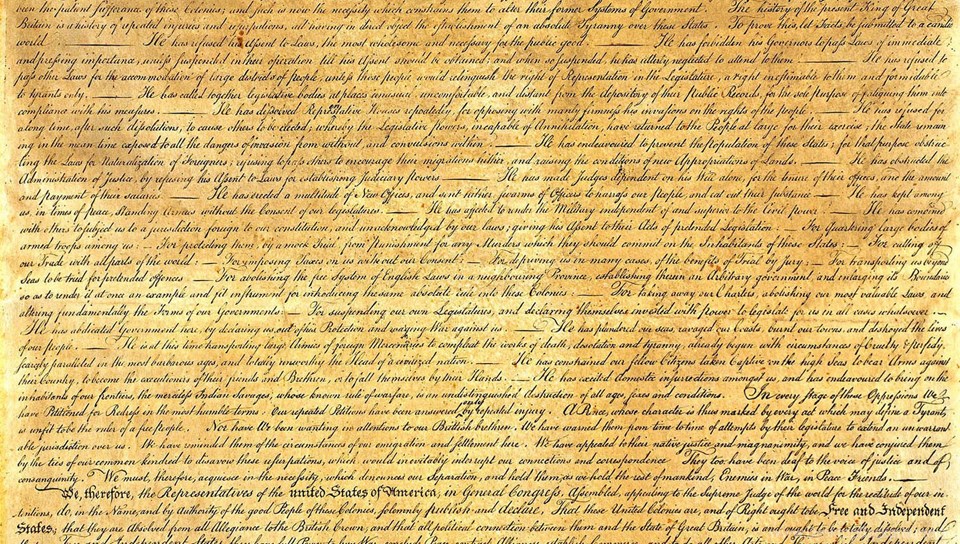 been the patient sufferance of these Colonies; and such is now the necessity which constrains them to alter their former Systems of Government. The history of the present King of Great
Britain is a history of repeated injuries and usurpations, all having in direct object the establishment of an absolute Tyranny over these States. To prove this, let Facts be submitted to a candid
world. — He has refused his Assent to Laws, the most wholesome and necessary for the public good. — He has forbidden his Governors to pass Laws of immediate
and pressing importance, unless suspended in their operation till his Assent should be obtained; and when so suspended, he has utterly neglected to attend to them. — He has refused to
pass other Laws for the accommodation of large districts of people, unless those people would relinquish the right of Representation in the Legislature, a right inestimable to them and formidable
to tyrants only. — He has called together legislative bodies at places unusual, uncomfortable, and distant from the depository of their Public Records, for the sole purpose of fatiguing them into
compliance with his measures. — He has dissolved Representative Houses repeatedly, for opposing with manly firmness his invasions on the rights of the people. — He has refused for
a long time, after such dissolutions, to cause others to be elected; whereby the Legislative powers, incapable of Annihilation, have returned to the People at large for their exercise; the State remain
ing in the mean time exposed to all the dangers of invasion from without, and convulsions within. — He has endeavoured to prevent the population of these States; for that purpose obstruc
ting the Laws for Naturalization of Foreigners; refusing to pass others to encourage their migrations hither, and raising the conditions of new Appropriations of Lands. — He has obstructed the
Administration of Justice, by refusing his Assent to Laws for establishing Judiciary powers. — He has made Judges dependent on his Will alone, for the tenure of their offices, and the amount
and payment of their salaries. — He has erected a multitude of New Offices, and sent hither swarms of Officers to harrass our people, and eat out their substance. — He has kept among
us, in times of peace, Standing Armies without the Consent of our legislatures. — He has affected to render the Military independent of and superior to the Civil power. — He has combined
with others to subject us to a jurisdiction foreign to our constitution, and unacknowledged by our laws; giving his Assent to their Acts of pretended Legislation: — For Quartering large bodies of
armed troops among us: — For protecting them, by a mock Trial, from punishment for any Murders which they should commit on the Inhabitants of these States: — For cutting off
our Trade with all parts of the world: — For imposing Taxes on us without our Consent: — For depriving us in many cases, of the benefits of Trial by jury: — For transporting us beyond
Seas to be tried for pretended offences — For abolishing the free System of English Laws in a neighbouring Province, establishing therein an Arbitrary government, and enlarging its Boundaries
so as to render it at once an example and fit instrument for introducing the same absolute rule into these Colonies: — For taking away our Charters, abolishing our most valuable Laws, and
altering fundamentally the Forms of our Governments: — For suspending our own Legislatures, and declaring themselves invested with power to legislate for us in all cases whatsoever. —
He has abdicated Government here, by declaring us out of his Protection and waging War against us. — He has plundered our seas, ravaged our Coasts, burnt our towns, and destroyed the lives
of our people. — He is at this time transporting large Armies of foreign Mercenaries to compleat the works of death, desolation and tyranny, already begun with circumstances of Cruelty & perfidy,
scarcely paralleled in the most barbarous ages, and totally unworthy the Head of a civilized nation. — He has constrained our fellow Citizens taken Captive on the high Seas to bear Arms against
their Country, to become the executioners of their friends and Brethren, or to fall themselves by their Hands. — He has excited domestic insurrections amongst us, and has endeavoured to bring on the
inhabitants of our frontiers, the merciless Indian Savages, whose known rule of warfare, is an undistinguished destruction of all ages, sexes and conditions. In every stage of these Oppressions We
have Petitioned for Redress in the most humble terms: Our repeated Petitions have been answered only by repeated injury. A Prince, whose character is thus marked by every act which may define a Tyrant,
is unfit to be the ruler of a free people. Nor have We been wanting in attentions to our Brittish brethren. We have warned them from time to time of attempts by their legislature to extend an unwarrant
able jurisdiction over us. We have reminded them of the circumstances of our emigration and settlement here. We have appealed to their native justice and magnanimity, and we have conjured them
by the ties of our common kindred to disavow these usurpations, which, would inevitably interrupt our connections and correspondence. They too have been deaf to the voice of justice and of
consanguinity. We must, therefore, acquiesce in the necessity, which denounces our Separation, and hold them, as we hold the rest of mankind, Enemies in War, in Peace Friends. —
We, therefore, the Representatives of the united States of America, in General Congress, Assembled, appealing to the Supreme Judge of the world for the rectitude of our in
tentions, do, in the Name, and by Authority of the good People of these Colonies, solemnly publish and declare, That these United Colonies are, and of Right ought to be Free and Independent
States; that they are Absolved from all Allegiance to the British Crown, and that all political connection between them and the State of Great Britain, is and ought to be totally dissolved; and